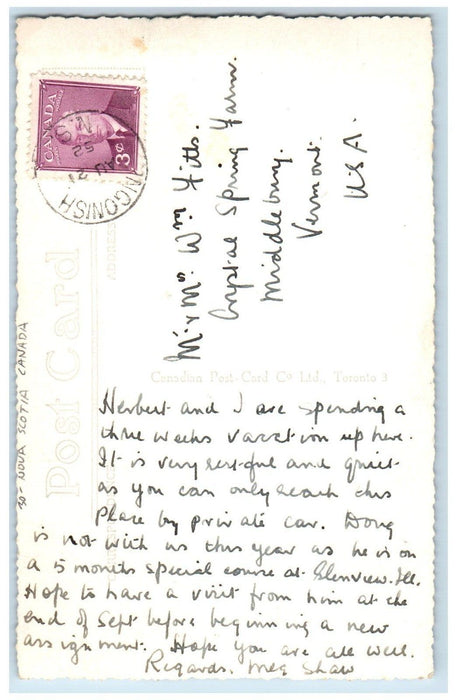 CANADA
3¢
INGONISH
AU 21
52
N.S.
Post Card
ADDRESS
30- NOVA SCOTIA CANADA
Mr & Mrs Wm Fitts.
Crystal Spring Farm.
Middlebury.
Vermont.
USA.
Canadian Post Card Co Ltd., Toronto 3
Herbert and I are spending a
three weeks vacation up here.
It is very restful and quiet
as you can only reach this
place by private car. Doug
is not with us this year as he is on
a 5 months special course at Glenview. Ill.
Hope to have a visit from him at the
end of Sept before beginning a new
assignment. Hope you are all well.
Regards. Meg Shaw